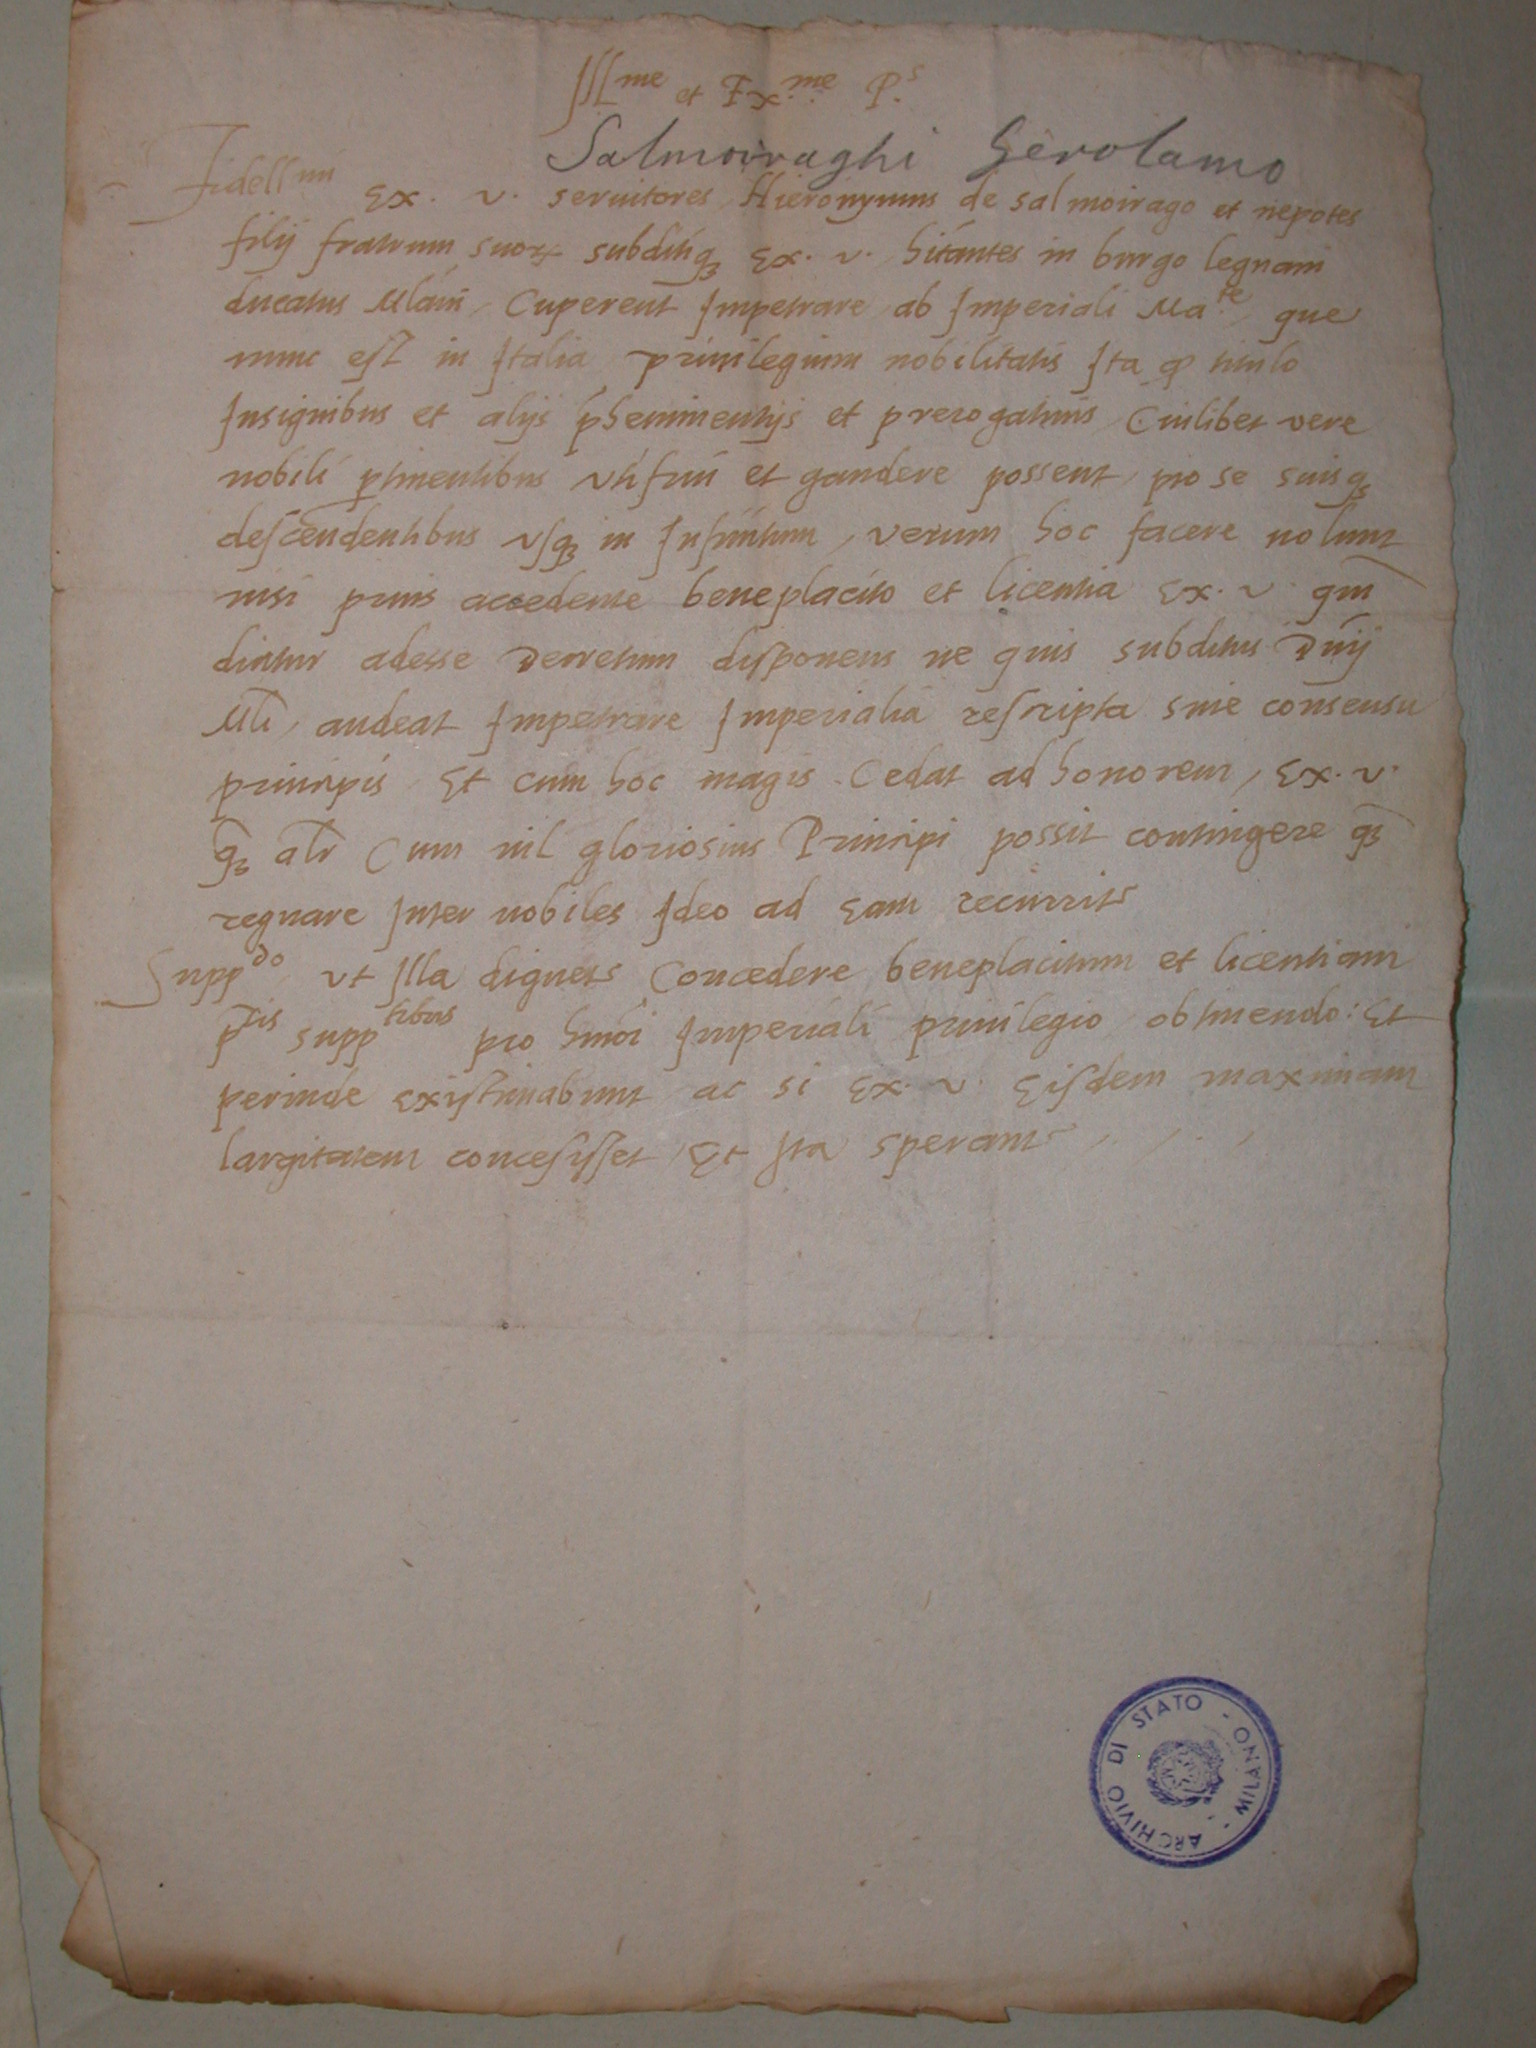 Ill.me et Ex.me P.s
Salmoiraghi Gerolamo
Fidell.mi Ex. v. seruitores Hieronymus de salmoirago et nepotes
filij fratrum suoꝝ subditiqꝫ Ex. v. hitantes in burgo legnani
ducatus Mlani, Cuperent Impetrare ab Imperiali Ma.te, que
nunc est in Italia priuilegium nobilitatis Ita ꝙ titulo
Insignibus et alijs pheminentijs et prerogatiuis Cuilibet vere
nobili ꝑtinentibus vti frui et gaudere possent, pro se suisqꝫ
descendentibus vsqꝫ in Infinitum, verum hoc facere nolunt
nisi prius accedente beneplacito et licentia Ex. v. qm
dicitur adesse Decretum disponens ne quis subditus Dnij
Mli, audeat Impetrare Imperialia rescripta sine consensu
principis, Et cum hoc magis Cedat ad honorem, Ex. v.
qꝫ alr Cum nil gloriosius Principi possit contingere qꝫ
regnare Inter nobiles Ideo ad Eam recurrit
Supp.do vt Illa dignetr Concedere beneplacitum et licentiam
p.tis supp.tibus pro hmoi Imperiali priuilegio obtinendo: Et
perinde existimabunt ac si Ex. v. Eisdem maximam
largitatem concesisset, Et Ita sperant
ARCHIVIO DI STATO - MILANO -